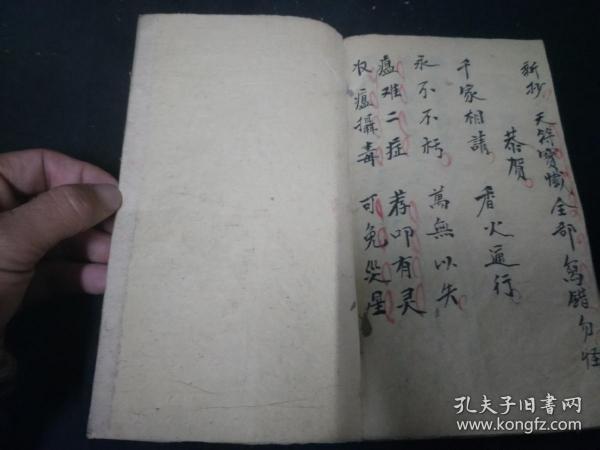 新抄 天符寳懺全部 寫錯勿怪
恭賀
千家相請 香火通行
永不不朽 萬無以失
瘟难二症 荐叩有灵
收瘟攝毒 可免災星
孔夫子旧书网
www.kongfz.com